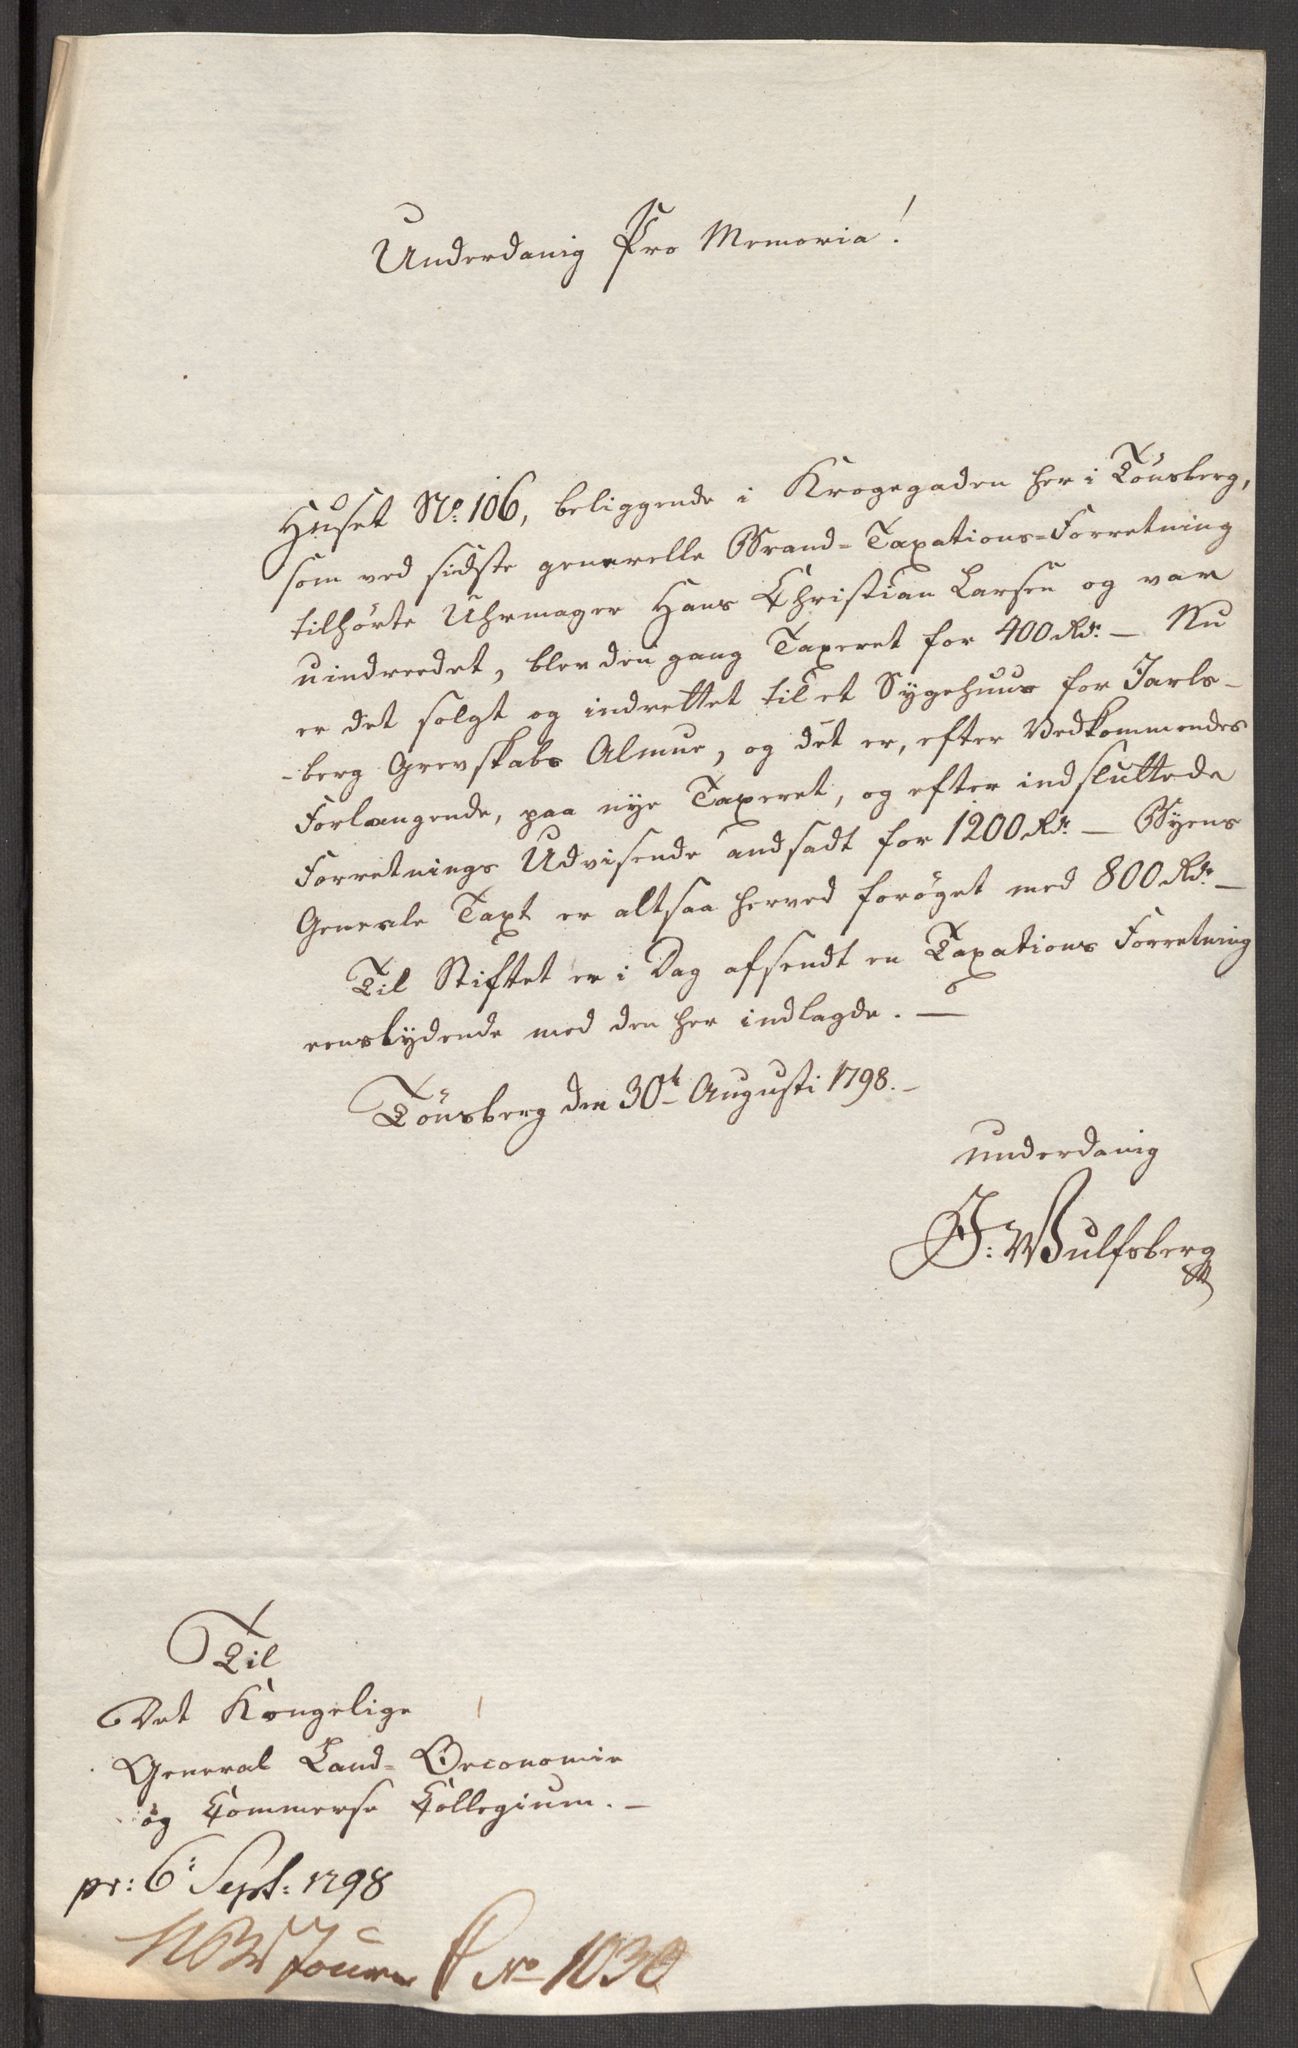 Underdanig Pro Memoria!
Huset No: 106, beliggende i Krogegaden her i Tönsberg,
som ved sidste generelle Brand-Taxations-Forretning
tilhörte Uhrmager Hans Christian Larsen og var
uindreedet, blev den gang Taxeret for 400 Rdr: — Nu
er det solgt og indrettet til et Sygehuus for Jarls-
-berg Grevskabs Almue, og det er, efter Vedkommendes
Forlangende, paa nye Taxeret, og efter indsluttede
Forretnings Udvisende andsadt for 1200 Rdr. — Byens
Generale Taxt er altsaa herved foröget med 800 Rdr. —
Til Stiftet er i Dag afsendt en Taxations Forretning
eenslydende med den her indlagde. —
Tönsberg den 30te Augusti 1798. —
underdanig
J: Wulfsberg
Til
Det Kongelige
General Land- Oeconomie
og Commerse Collegium. —
pr: 6: Sept: 1798
Journ No 1030